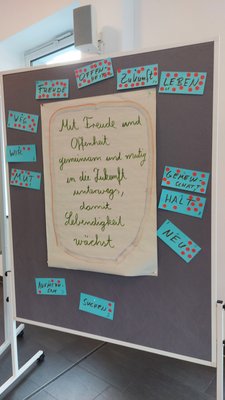 OFFEN-
HEIT
FREUDE
Zukunft
LEBEN
VIEL
WIR
MUT
Mit Freude und
Offenheit
gemeinsam und mutig
in die Zukunft
unterwegs,
damit
Lebendigkeit
wächst
GEMEIN
SCHAFT
HALT
NEU
SUCHEN